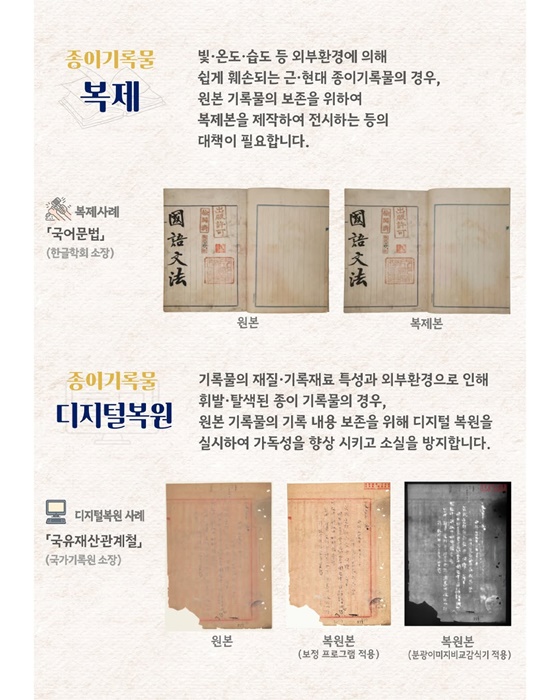 종이기록물
복제
빛·온도·습도 등 외부환경에 의해
쉽게 훼손되는 근·현대 종이기록물의 경우,
원본 기록물의 보존을 위하여
복제본을 제작하여 전시하는 등의
대책이 필요합니다.
복제사례
「국어문법」
(한글학회 소장)
國語文法
出版許可
國語文法
出版許可
원본
복제본
종이기록물
디지털복원
기록물의 재질·기록재료 특성과 외부환경으로 인해
휘발·탈색된 종이 기록물의 경우,
원본 기록물의 기록 내용 보존을 위해 디지털 복원을
실시하여 가독성을 향상 시키고 소실을 방지합니다.
디지털복원 사례
「국유재산관계철」
(국가기록원 소장)
원본
복원본
(보정 프로그램 적용)
복원본
(분광이미지비교감식기 적용)